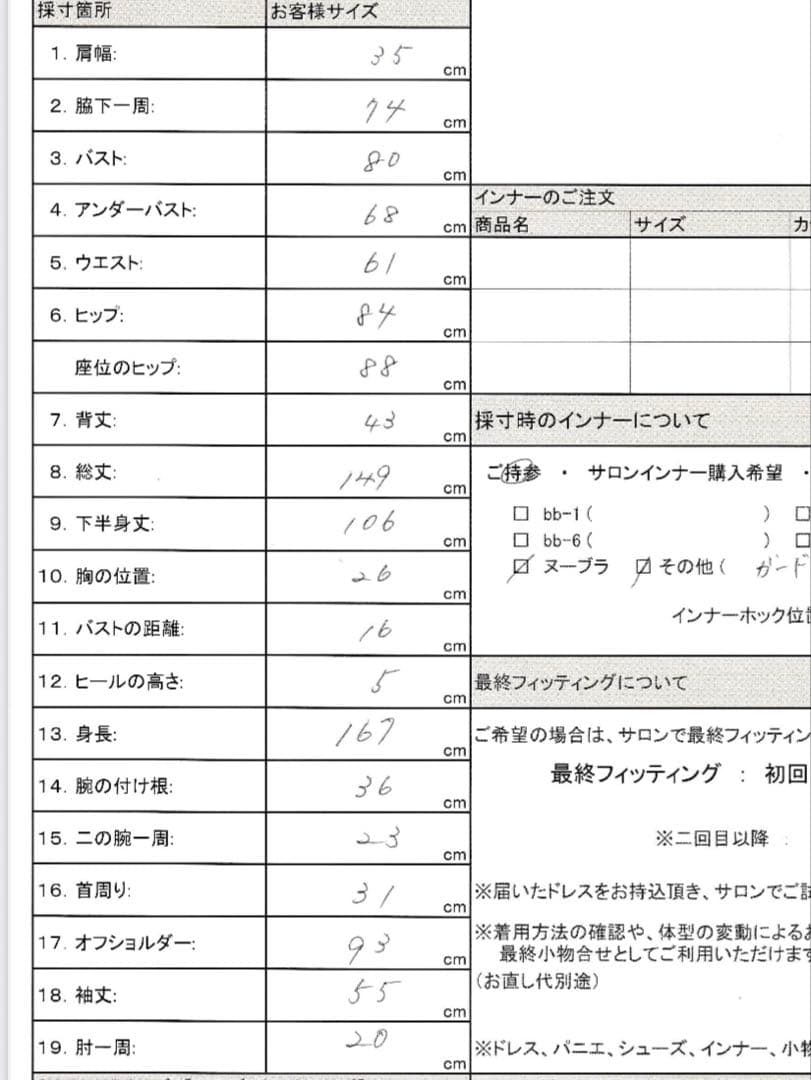 採寸箇所 お客様サイズ
1. 肩幅: 35 cm
2. 脇下一周: 74 cm
3. バスト: 80 cm
4. アンダーバスト: 68 cm
5. ウエスト: 61 cm
6. ヒップ: 84 cm
座位のヒップ: 88 cm
7. 背丈: 43 cm
8. 総丈: 149 cm
9. 下半身丈: 106 cm
10. 胸の位置: 26 cm
11. バストの距離: 16 cm
12. ヒールの高さ: 5 cm
13. 身長: 167 cm
14. 腕の付け根: 36 cm
15. 二の腕一周: 23 cm
16. 首周り: 31 cm
17. オフショルダー: 93 cm
18. 袖丈: 55 cm
19. 肘一周: 20 cm
インナーのご注文
商品名 サイズ カ
採寸時のインナーについて
ご持参 ・ サロンインナー購入希望 ・
□ bb-1 ( ) □
□ bb-6 ( ) □
☑ ヌーブラ ☑ その他 ( ガード
インナーホック位置
最終フィッティングについて
ご希望の場合は、サロンで最終フィッティン
最終フィッティング : 初回
※二回目以降 :
※届いたドレスをお持込頂き、サロンでご試
※着用方法の確認や、体型の変動によるお
最終小物合せとしてご利用いただけます
(お直し代別途)
※ドレス、パニエ、シューズ、インナー、小物